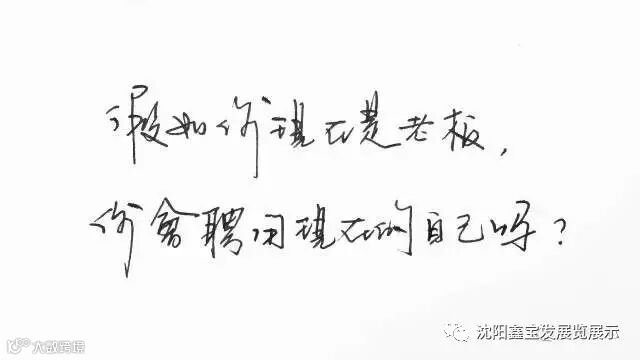 假如你现在是老板，
你会聘用现在的自己吗？
大数跨境
沈阳鑫宝发展览展示